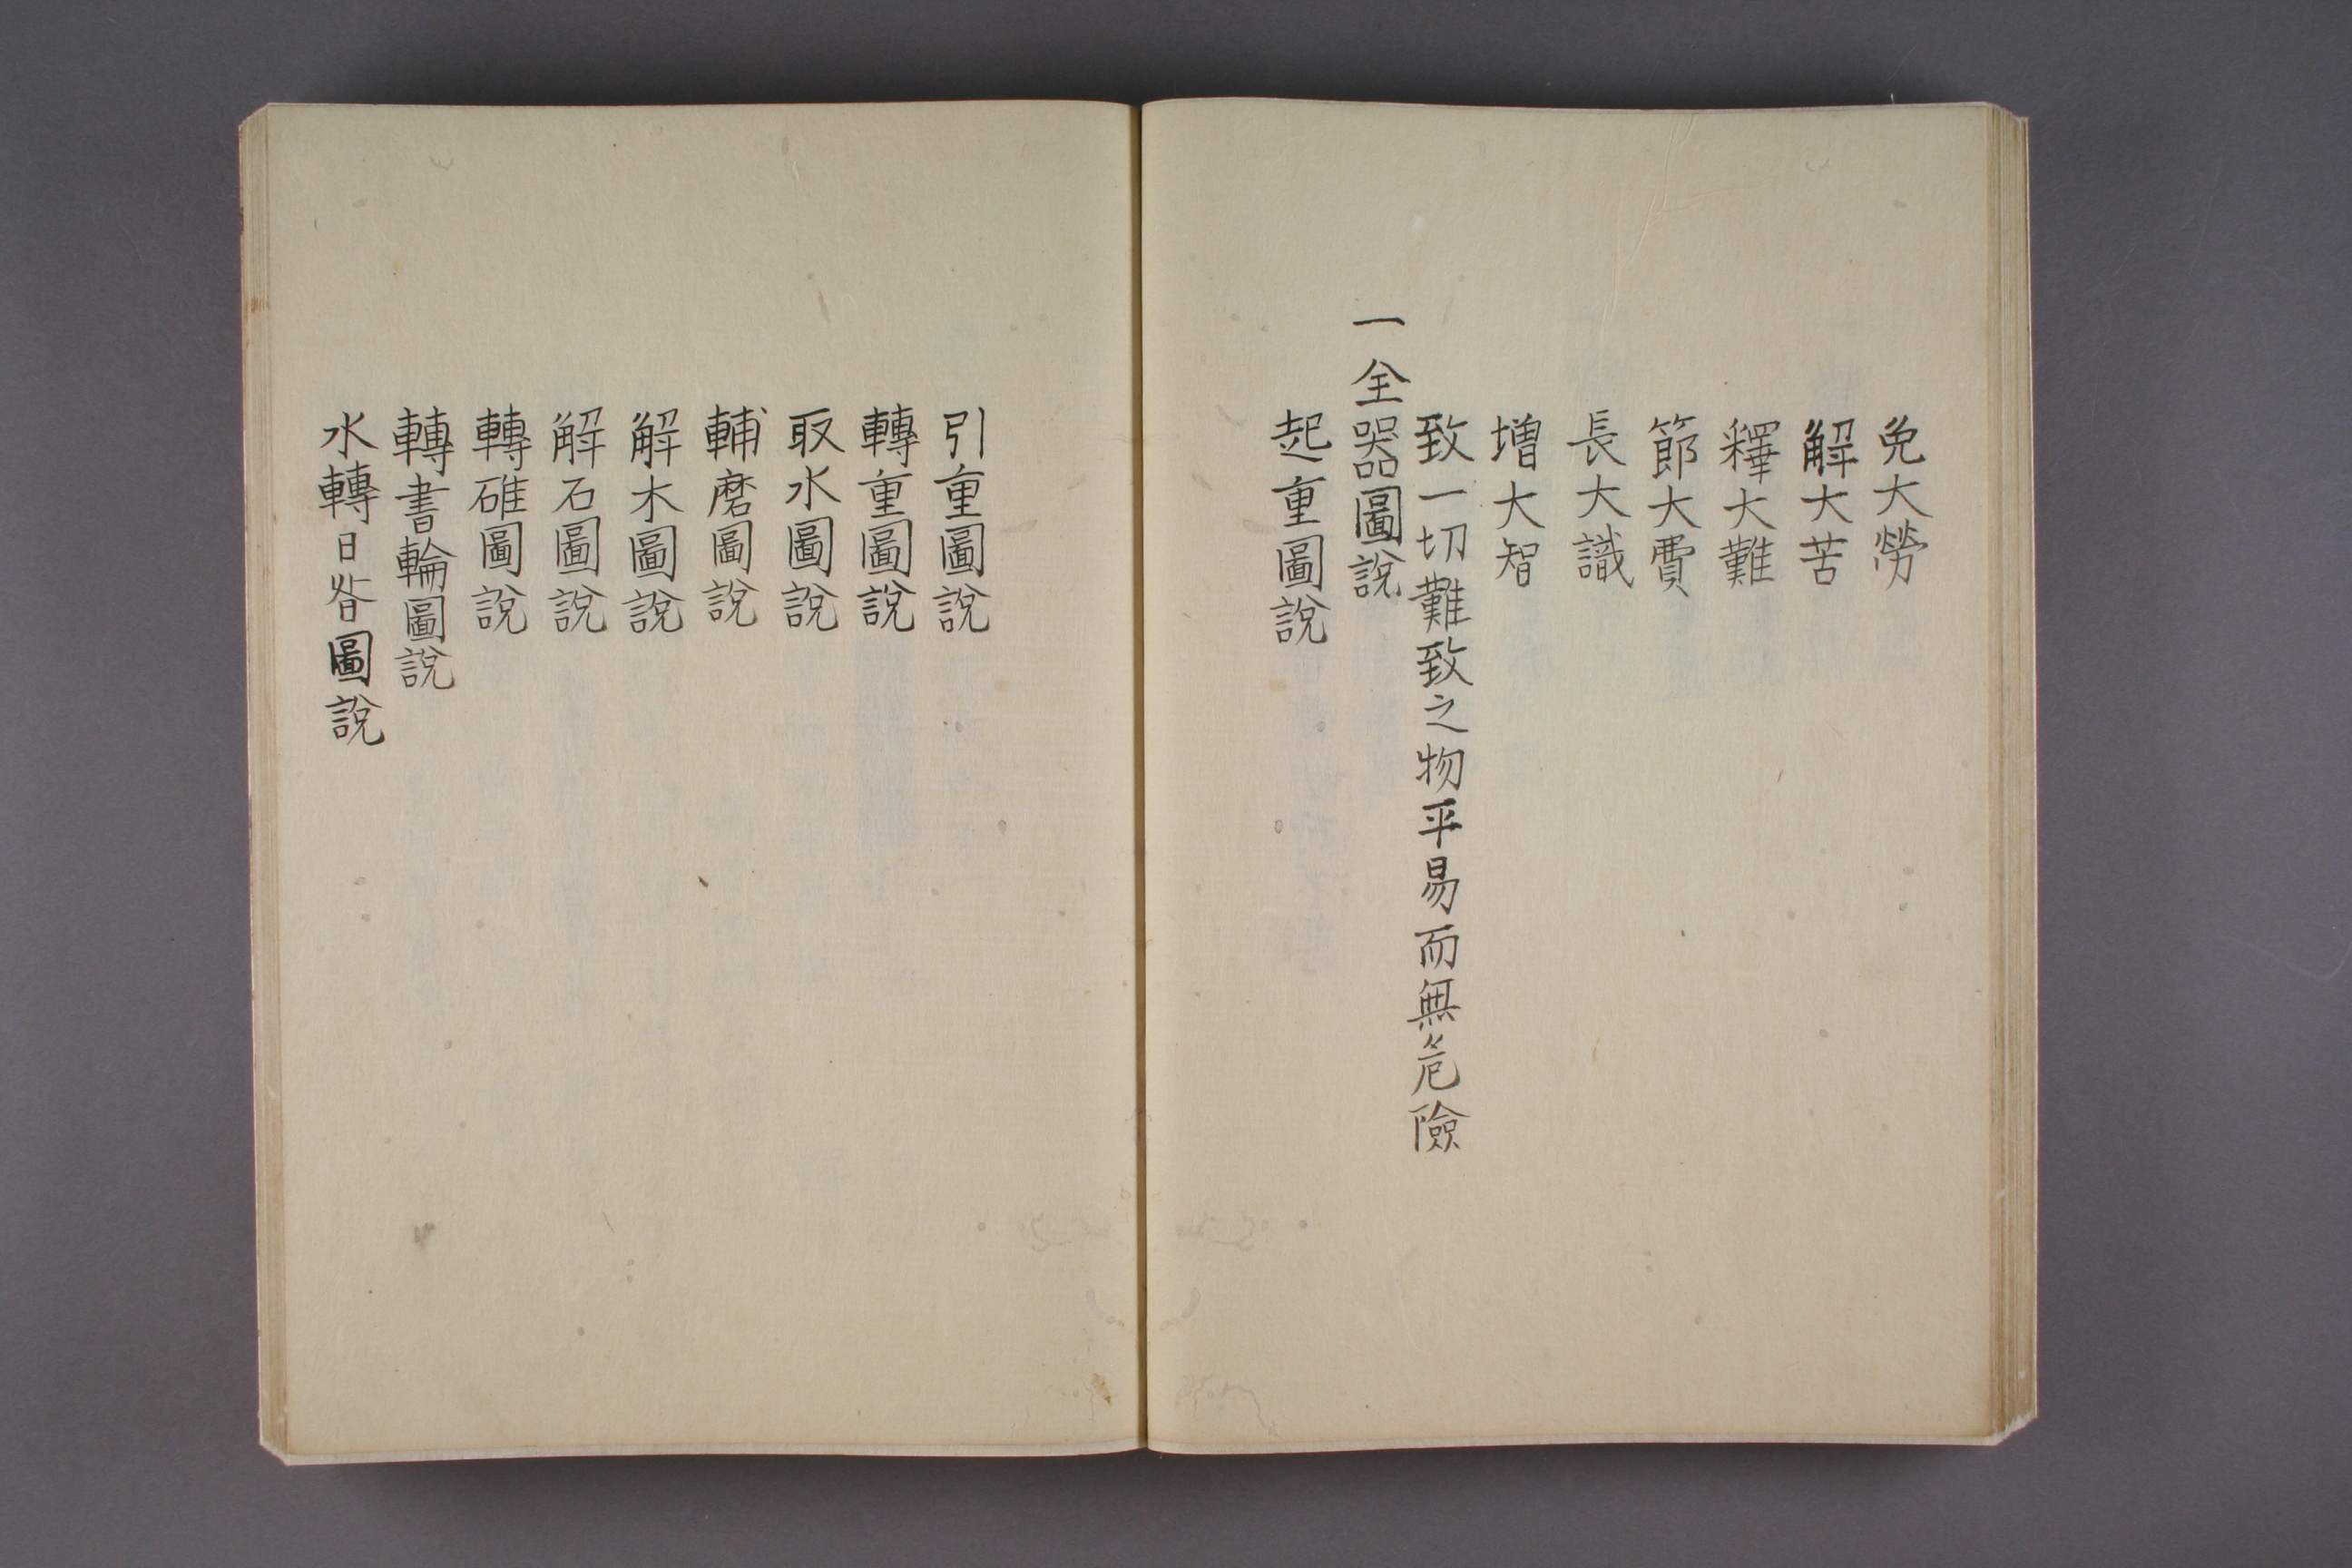 免大勞
解大苦
釋大難
節大費
長大識
增大智
致一切難致之物平易而無危險
一全器圖說
起重圖說
引重圖說
轉重圖說
取水圖說
輔磨圖說
解木圖說
解石圖說
轉碓圖說
轉書輪圖說
水轉日晷圖說